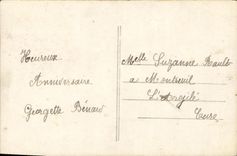 Heureux
Anniversaire
Georgette Bénard
Melle Suzanne
a Montreuil
L'Argilé
Eure